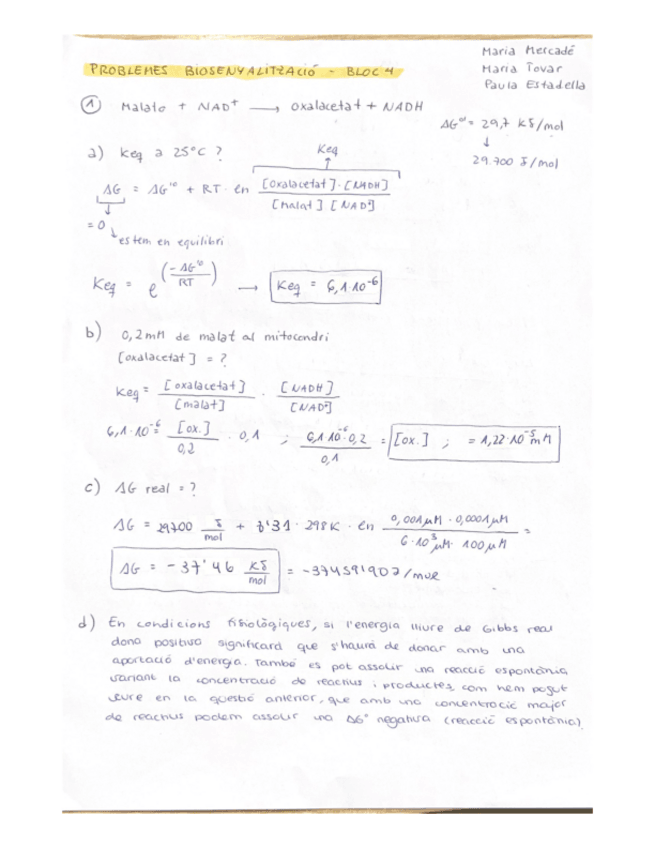 Maria Mercadé
PROBLEMES BIOSENYALITZACIÓ - BLOC 4
Maria Tovar
Paula Estadella
① Malato + NAD⁺ ⟶ oxalacetat + NADH
ΔG'⁰ = 29,7 KJ/mol
↓
29.700 J/mol
a) Keq a 25°C ?
Keq
↑
ΔG = ΔG'⁰ + RT · ln [Oxalacetat] · [NADH] / [Malat] [NAD⁺]
↓
= 0
↳ estem en equilibri
Keq = e^(-ΔG'⁰ / RT) ⟶ Keq = 6,1·10⁻⁶
b) 0,2mM de malat al mitocondri
[oxalacetat] = ?
Keq = [oxalacetat] / [malat] · [NADH] / [NAD⁺]
6,1·10⁻⁶ = [ox.] / 0,2 · 0,1 ; 6,1·10⁻⁶·0,2 / 0,1 = [ox.] ; = 1,22·10⁻⁵ mM
c) ΔG real = ?
ΔG = 29700 J/mol + 8'31 · 298K · ln 0,001μM · 0,0001μM / 6·10³μM · 100μM =
ΔG = -37'46 KJ/mol = -37459190J/mol
d) En condicions fisiològiques, si l'energia lliure de Gibbs real
dona positiva significarà que s'haurà de donar amb una
aportació d'energia. També es pot assolir una reacció espontània
variant la concentració de reactius i productes, com hem pogut
veure en la qüestió anterior, que amb una concentració major
de reactius podem assolir una ΔG° negativa (reacció espontània).